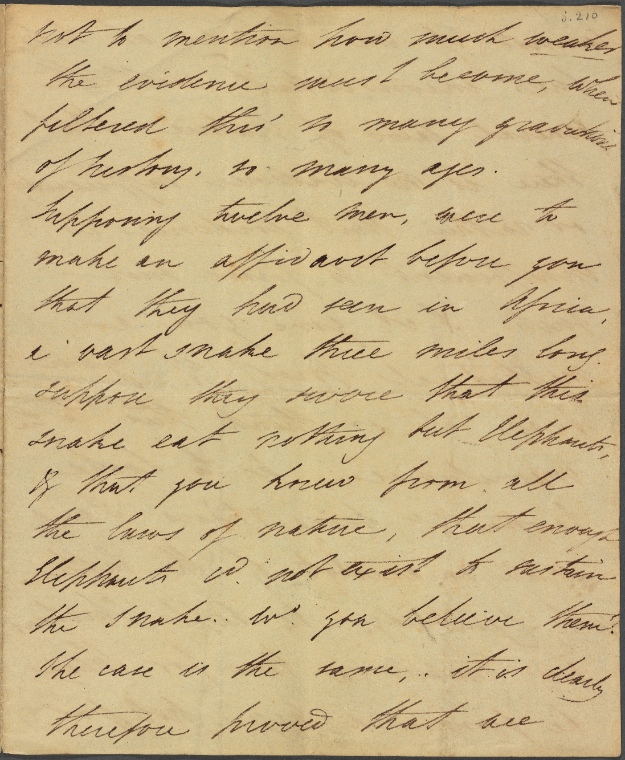 S. 210
not to mention how much weaker
the evidence must become, when
filtered thro' so many gradations
of history. so many ages.
supposing twelve men, were to
make an affidavit before you
that they had seen in Africa,
a vast snake three miles long.
suppose they swore that this
snake eat nothing but Elephants,
& that you knew from all
the laws of nature, that enough
Elephants cd. not exist to sustain
the snake.. wd. you believe them?
the case is the same,.. it is clearly
therefore proved that all